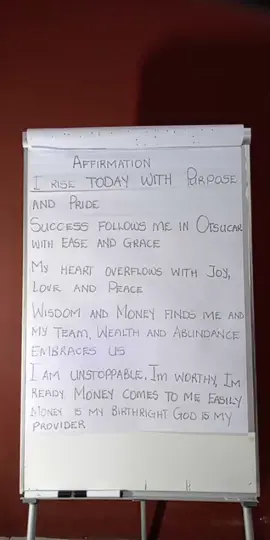 AFFIRMATION
I RISE TODAY WITH PURPOSE
AND PRIDE
SUCCESS FOLLOWS ME IN OTSUCAR
WITH EASE AND GRACE
MY HEART OVERFLOWS WITH JOY,
LOVE AND PEACE
WISDOM AND MONEY FINDS ME AND
MY TEAM, WEALTH AND ABUNDANCE
EMBRACES US
I AM UNSTOPPABLE. IM WORTHY, IM
READY. MONEY COMES TO ME EASILY
MONEY IS MY BIRTHRIGHT GOD IS MY
PROVIDER